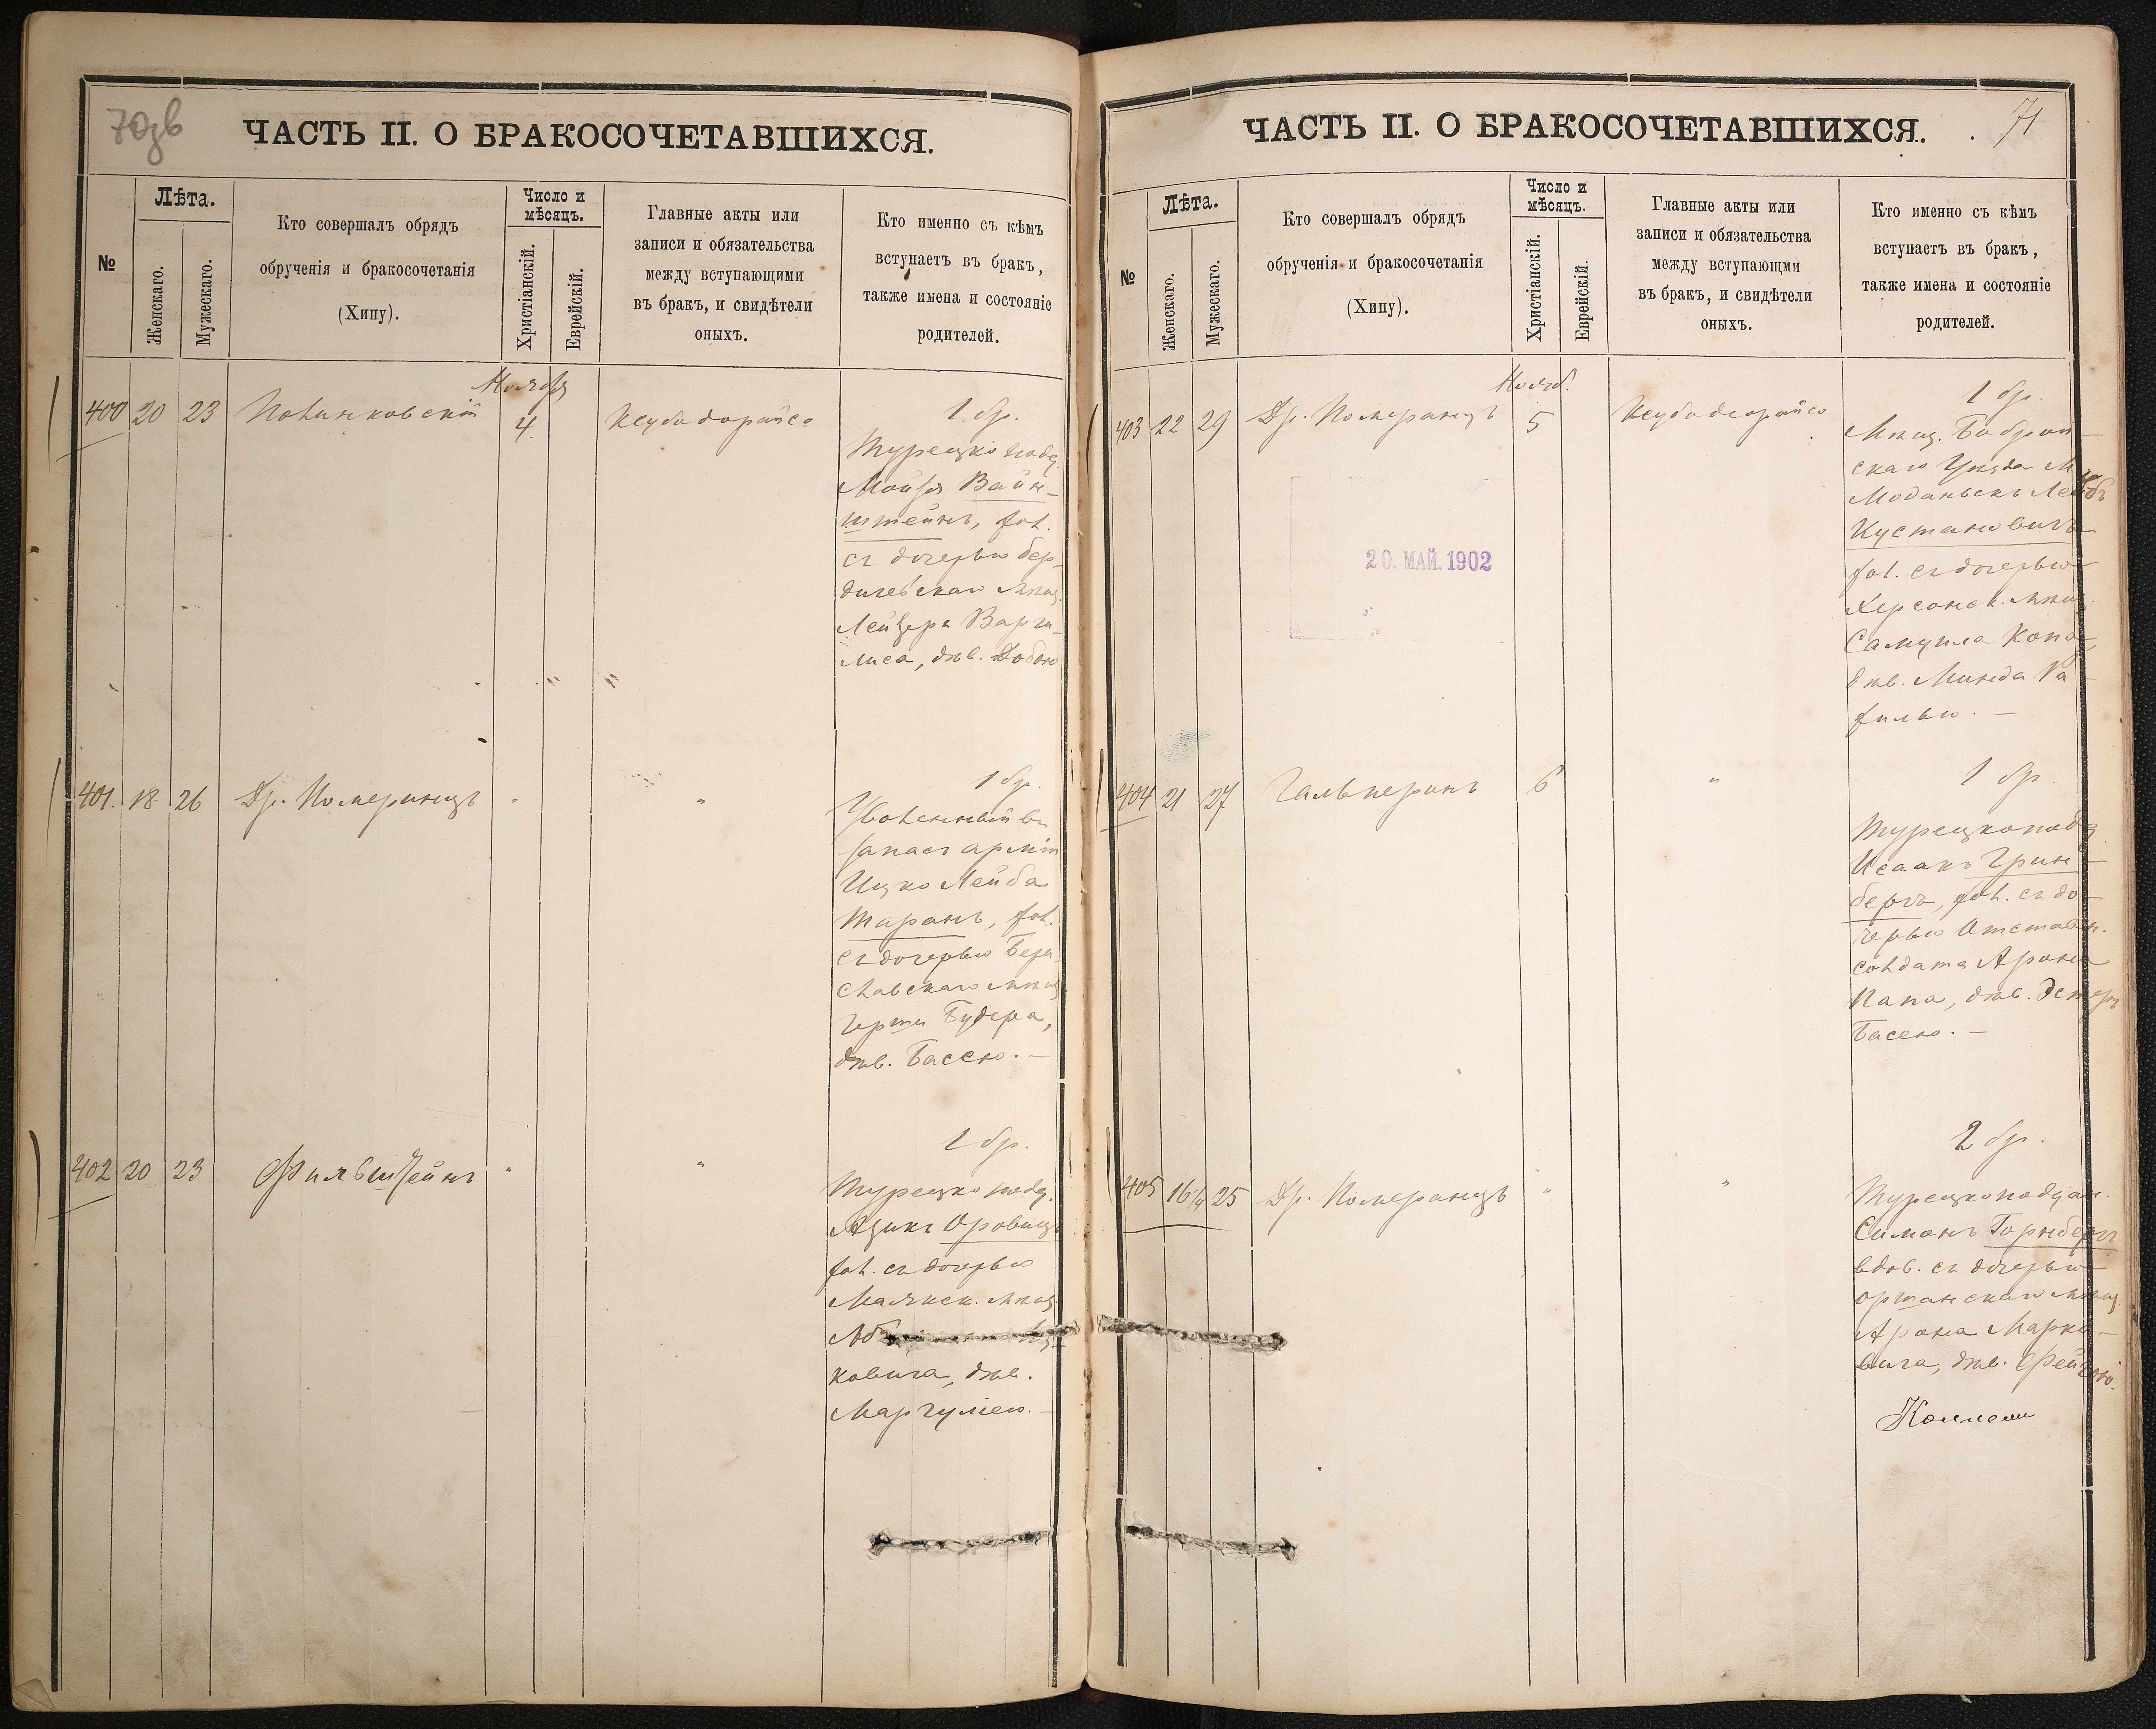 70зв
ЧАСТЬ II. О БРАКОСОЧЕТАВШИХСЯ.
№
Лѣта.
Женскаго.
Мужескаго.
Кто совершалъ обрядъ
обрученія и бракосочетанія
(Хипу).
Число и
мѣсяцъ.
Христіанскій.
Еврейскій.
Главные акты или
записи и обязательства
между вступающими
въ бракъ, и свидѣтели
оныхъ.
Кто именно съ кѣмъ
вступаетъ въ бракъ,
также имена и состояніе
родителей.
Ноября
400 20 23 Полинковскій 4. Ксубодорайсо
1 бр.
Турецко подд.
Мойзя Вайн-
штейнъ, хол.
съ дочерью бер-
дичевскаго мѣщ.
Лейзера Варги-
лиса, дѣв. Добою
401. 18 26 Др. Померанцъ " "
1 бр.
Уволенный въ
запасъ арміи
Ицко Лейба
Таранъ, хол.
съ дочерью Бери-
славскаго мѣщ.
Герши Будера,
дѣв. Басею. —
402 20 23 Фильштейнъ " "
1 бр.
Турецко подд.
Ацикъ Оровицъ
хол. съ дочерью
Маякск. мѣщ.
ковича, дѣв.
Маргулею. —
71
ЧАСТЬ II. О БРАКОСОЧЕТАВШИХСЯ.
№
Лѣта.
Женскаго.
Мужескаго.
Кто совершалъ обрядъ
обрученія и бракосочетанія
(Хипу).
Число и
мѣсяцъ.
Христіанскій.
Еврейскій.
Главные акты или
записи и обязательства
между вступающми
въ бракъ, и свидѣтели
оныхъ.
Кто именно съ кѣмъ
вступаетъ въ бракъ,
также имена и состояніе
родителей.
Нояб.
403 22 29 Др. Померанцъ 5 Ксубодеорайсо
1 бр.
Мѣщ. Бобруй-
скаго Уѣзда М.
Лейбъ
Кустановичъ
хол. съ дочерью
Херсонск. мѣщ.
Самуила Копа,
дѣв. Минда Ра-
филью. —
20. МАЙ. 1902
404 21 27 Гальперинъ 6 "
1 бр.
Турецкоподд.
Исаакъ Грин-
бергъ, хол. съ до-
черью Отставн.
солдата Арона
Капа, дѣв. Эстеръ
Басею. —
405 16½ 25 Др. Померанцъ " "
2 бр.
Турецкоподдан.
Симонъ Горнбергъ
вдов. съ дочерью
оршанскаго мѣщ.
Арона Марко-
вича, дѣв. Фейгою.